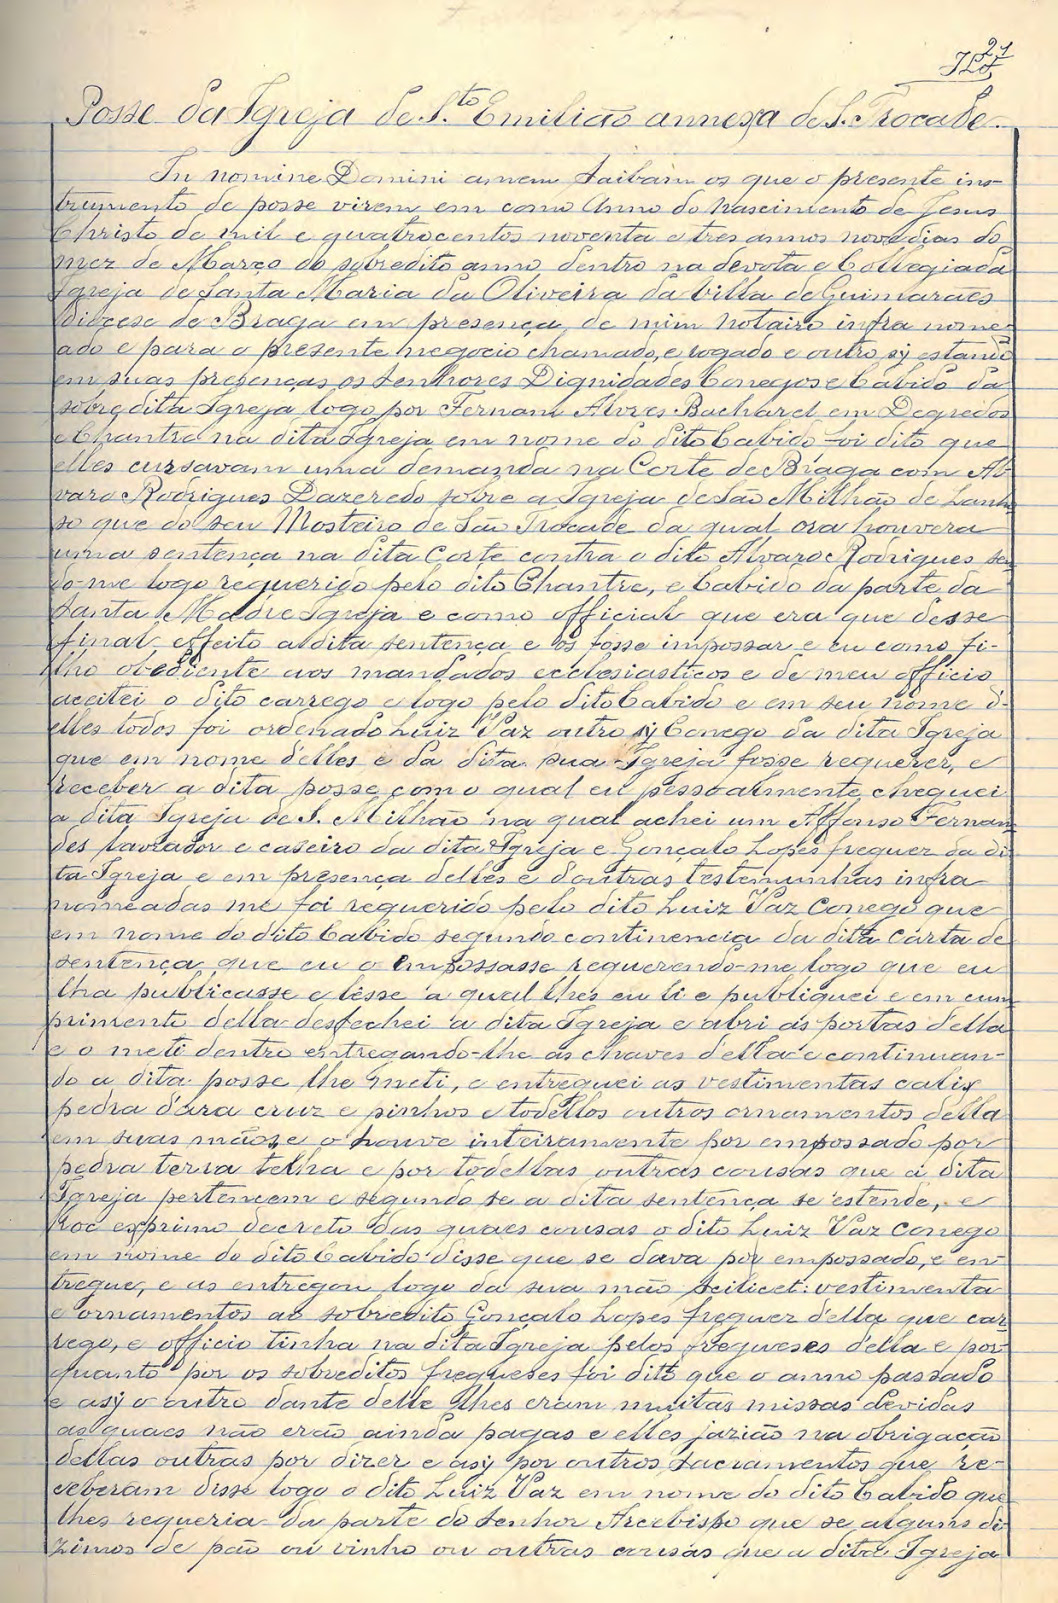 21
Posse da Igreja de S.to Emilião annexa de S. Trocade.
In nomine Domini amem Saibam os que o presente ins-
trumento de posse virem em como Anno do Nascimento de Jesus
Christo de mil e quatrocentos noventa e tres annos nove dias do
mez de Março do sobredito anno dentro na devota e Collegiada
Igreja de Santa Maria da Oliveira da Villa de Guimarães
Diocese de Braga em presença de mim notairo infra nome-
ado e para o presente negocio chamado, e rogado e outro sy estando
em suas presenças os Senhores Dignidades Conegos e Cabido da
sobredita Igreja logo por Fernam Alvres Bacharel em Degredos
e Chantre na dita Igreja em nome do dito Cabido foi dito que
elles cursavam uma demanda na Corte de Braga com Al-
varo Rodrigues Dazeredo sobre a Igreja de São Milhão de Lanho
so que do seu Mosteiro de São Trocade da qual ora houvera
uma sentença na dita Corte contra o dito Alvaro Rodrigues sen
do-me logo requerido pelo dito Chantre, e Cabido da parte da
Santa Madre Igreja e como official que era que desse
final effeito a dita sentença e os fosse impossar e eu como fi-
lho obediente aos mandados ecclesiasticos e de meu officio
acceitei o dito carrego e logo pelo dito Cabido e em seu nome d'-
elles todos foi ordenado Luiz Vaz outro sy Conego da dita Igreja
que em nome d'elles e da dita sua Igreja fosse requerer, e
receber a dita posse com o qual eu pessoalmente cheguei
a dita Igreja de S. Milhão na qual achei um Affonso Fernan
des lavrador e caseiro da dita Igreja e Gonçalo Lopes freguez da di
ta Igreja e em presença delles e d'outras testemunhas infra
nomeadas me foi requerido pelo dito Luiz Vaz Conego que
em nome do dito Cabido segundo continencia da dita carta de
sentença que eu o empossasse requerendo-me logo que eu
lha publicasse e lesse a qual lhes eu li e publiquei e em cum
primento della desfechei a dita Igreja e abri as portas d'ella
e o meti dentro entregando-lhe as chaves d'ella e continuan-
do a dita posse lhe meti, e entreguei as vestimentas calix
pedra d'ara cruz e sinhos e todollos outros ornamentos della
em suas mãos e o houve inteiramente por empossado por
pedra terra telha e por todellas outras cousas que á dita
Igreja pertencem e segundo se a dita sentença se estende, e
hoc exprimo decreto das quaes cousas o dito Luiz Vaz Conego
em nome do dito Cabido disse que se dava por empossado, e en
tregue, e as entregou logo da sua mão scilicet: vestimenta
e ornamentos ao sobredito Gonçalo Lopes freguez d'ella que car
rego, e officio tinha na dita Igreja pelos freguezes d'ella e por
quanto por os sobreditos freguezes foi dito que o anno passado
e asy o outro dante delle lhes eram muitas missas devidas
as quaes não erão ainda pagas e elles jazião na obrigação
dellas outras por dizer e asy por outros Sacramentos que re-
ceberam disse logo o dito Luiz Vaz em nome do dito Cabido que
lhes requeria da parte do Senhor Arcebispo que se alguns di
zimos de pão ou vinho ou outras cousas que a dita Igreja